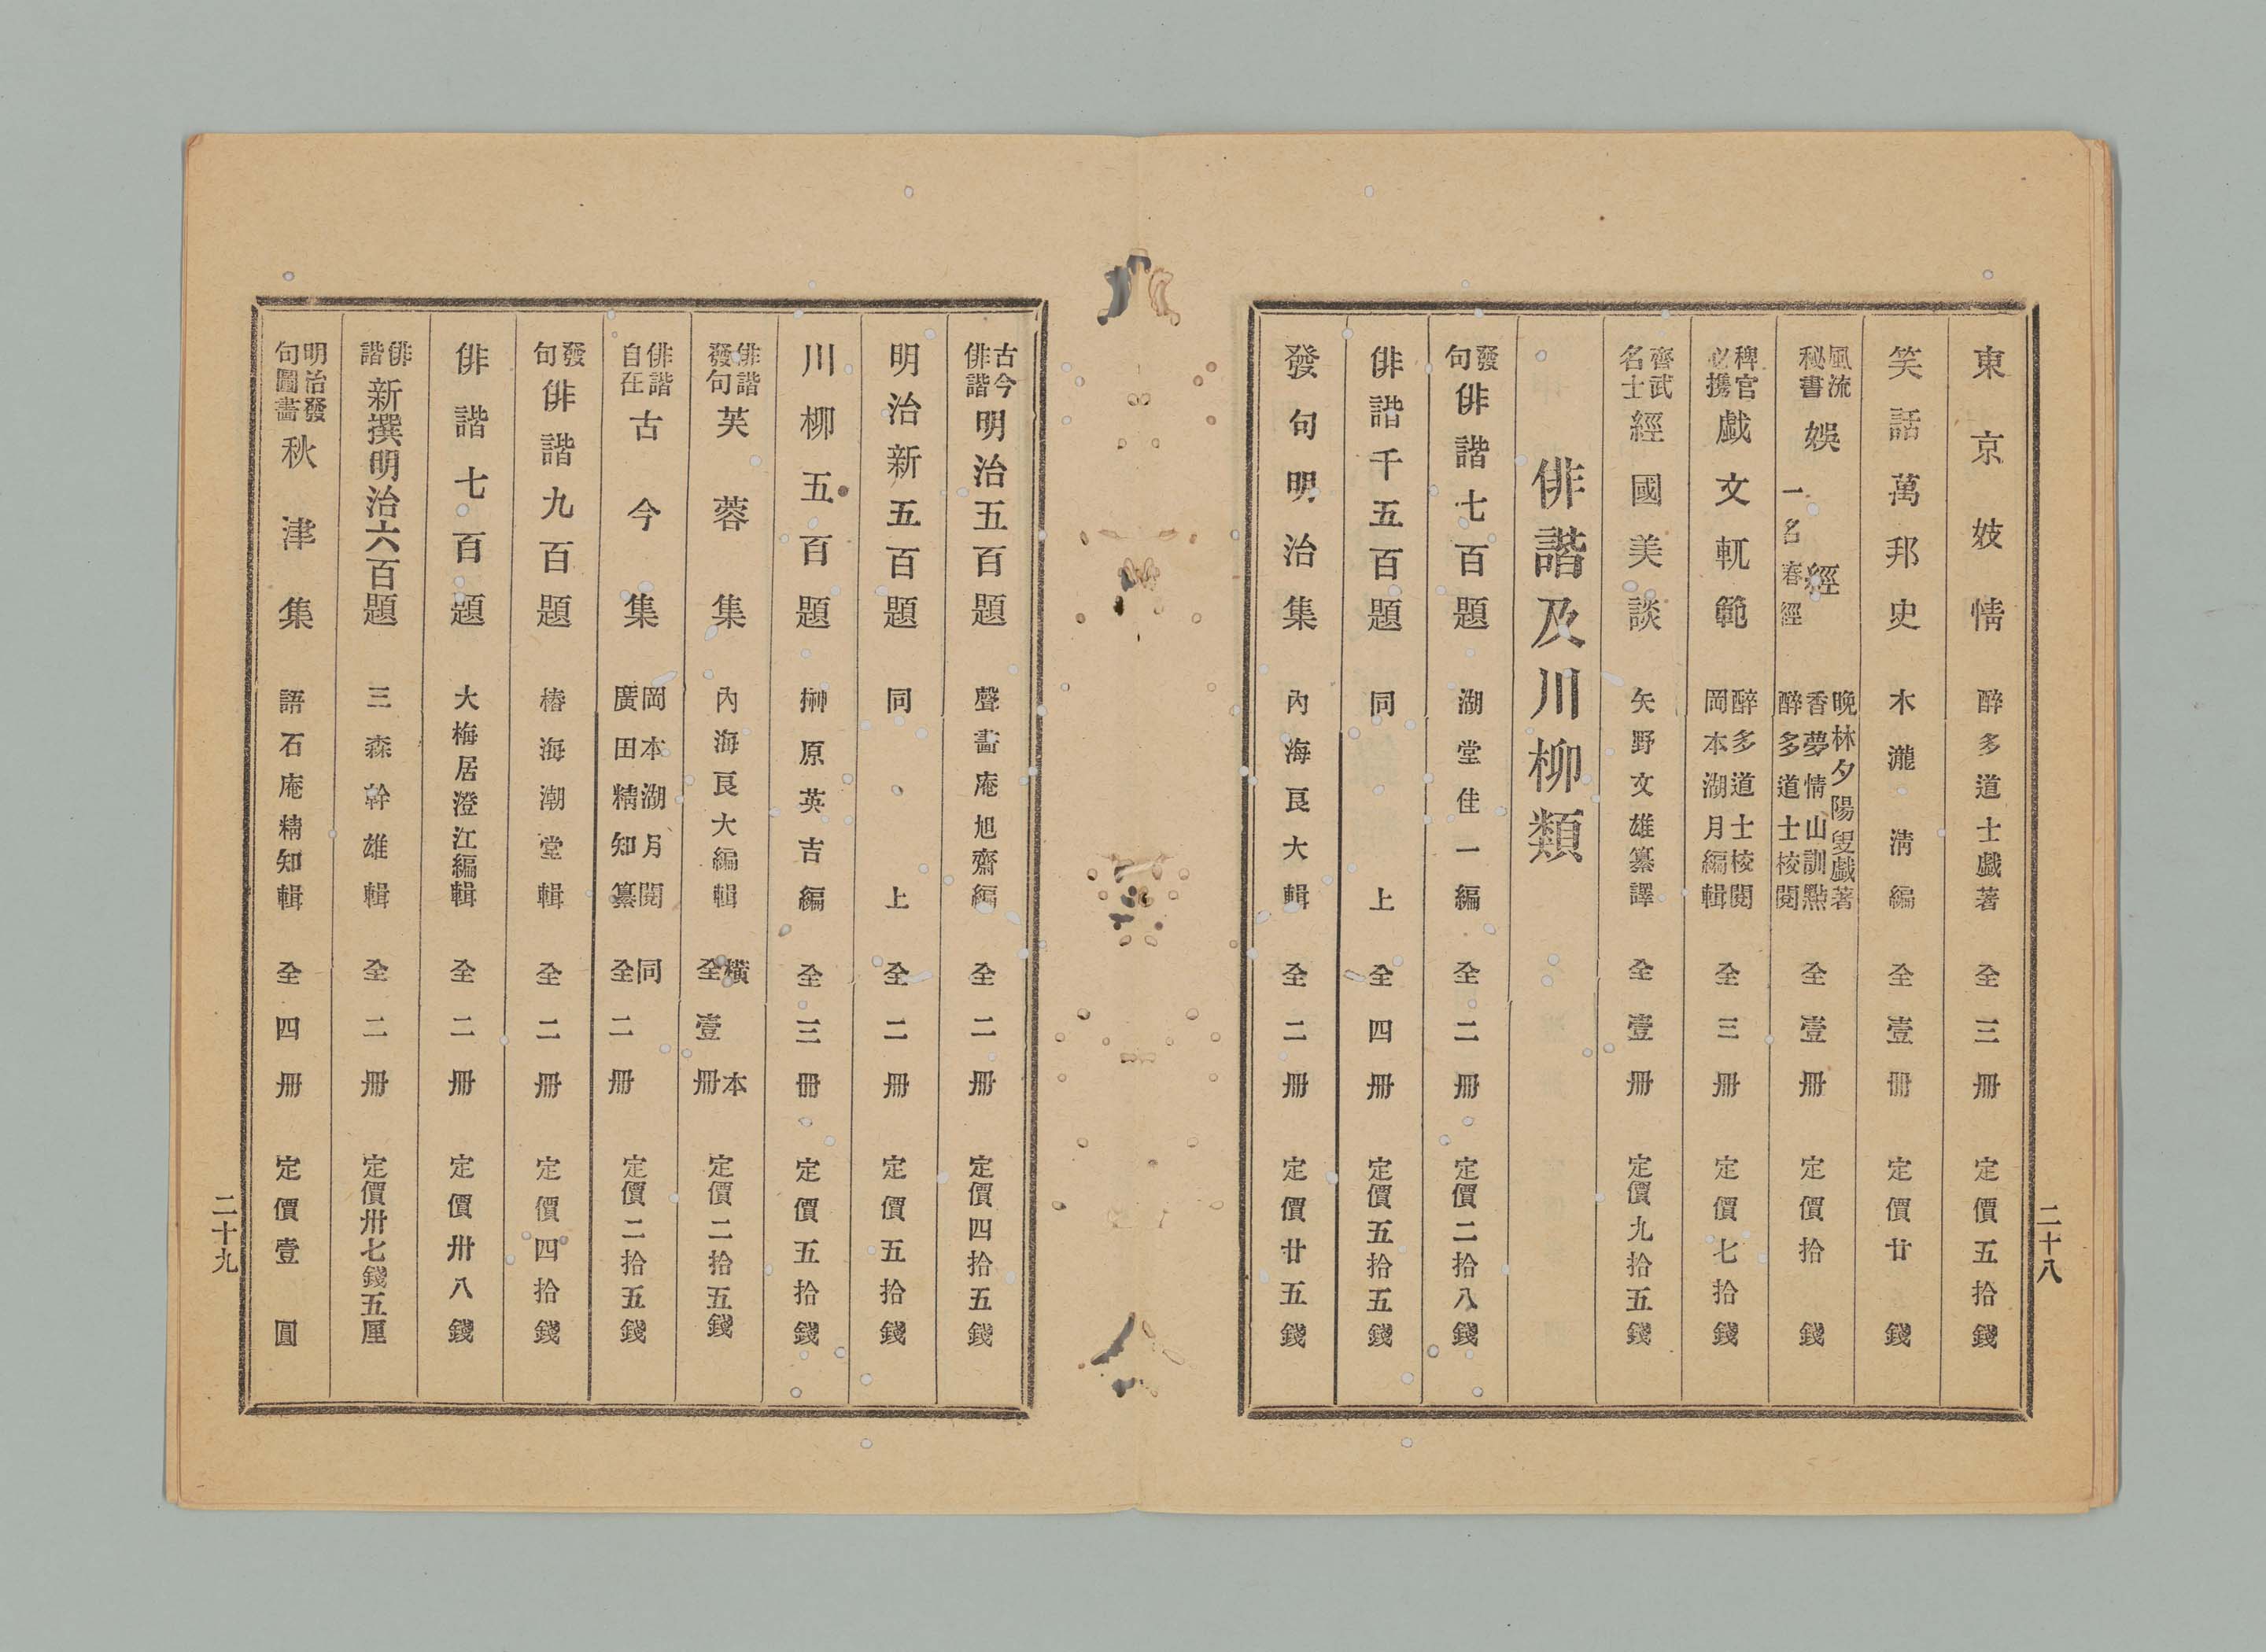 東京妓情 醉多道士戯著 全三冊 定價五拾錢
笑話萬邦史 木瀧淸編 全壹冊 定價廿錢
風流秘書 娛經 一名春經 晩林夕陽叟戯著 香夢情山訓㸃 醉多道士校閱 全壹冊 定價拾錢
稗官必携 戯文軌範 醉多道士校閱 岡本湖月編輯 全三冊 定價七拾錢
齊武名士 經國美談 矢野文雄纂譯 全壹冊 定價九拾五錢
俳諧及川柳類
發句 俳諧七百題 湖堂佳一編 全二冊 定價二拾八錢
俳諧千五百題 同上 全四冊 定價五拾五錢
發句明治集 內海良大輯 全二冊 定價廿五錢
二十八
古今俳諧 明治五百題 聲畵庵旭齋編 全二冊 定價四拾五錢
明治新五百題 同上 全二冊 定價五拾錢
川柳五百題 榊原英吉編 全三冊 定價五拾錢
俳諧發句 芙蓉集 內海良大編輯 橫本全壹冊 定價二拾五錢
俳諧自在 古今集 岡本湖月閱 廣田精知纂 同全二冊 定價二拾五錢
發句 俳諧九百題 椿海潮堂輯 全二冊 定價四拾錢
俳諧七百題 大梅居澄江編輯 全二冊 定價卅八錢
俳諧 新撰明治六百題 三森幹雄輯 全二冊 定價卅七錢五厘
明治發句圖畵 秋津集 語石庵精知輯 全四冊 定價壹圓
二十九